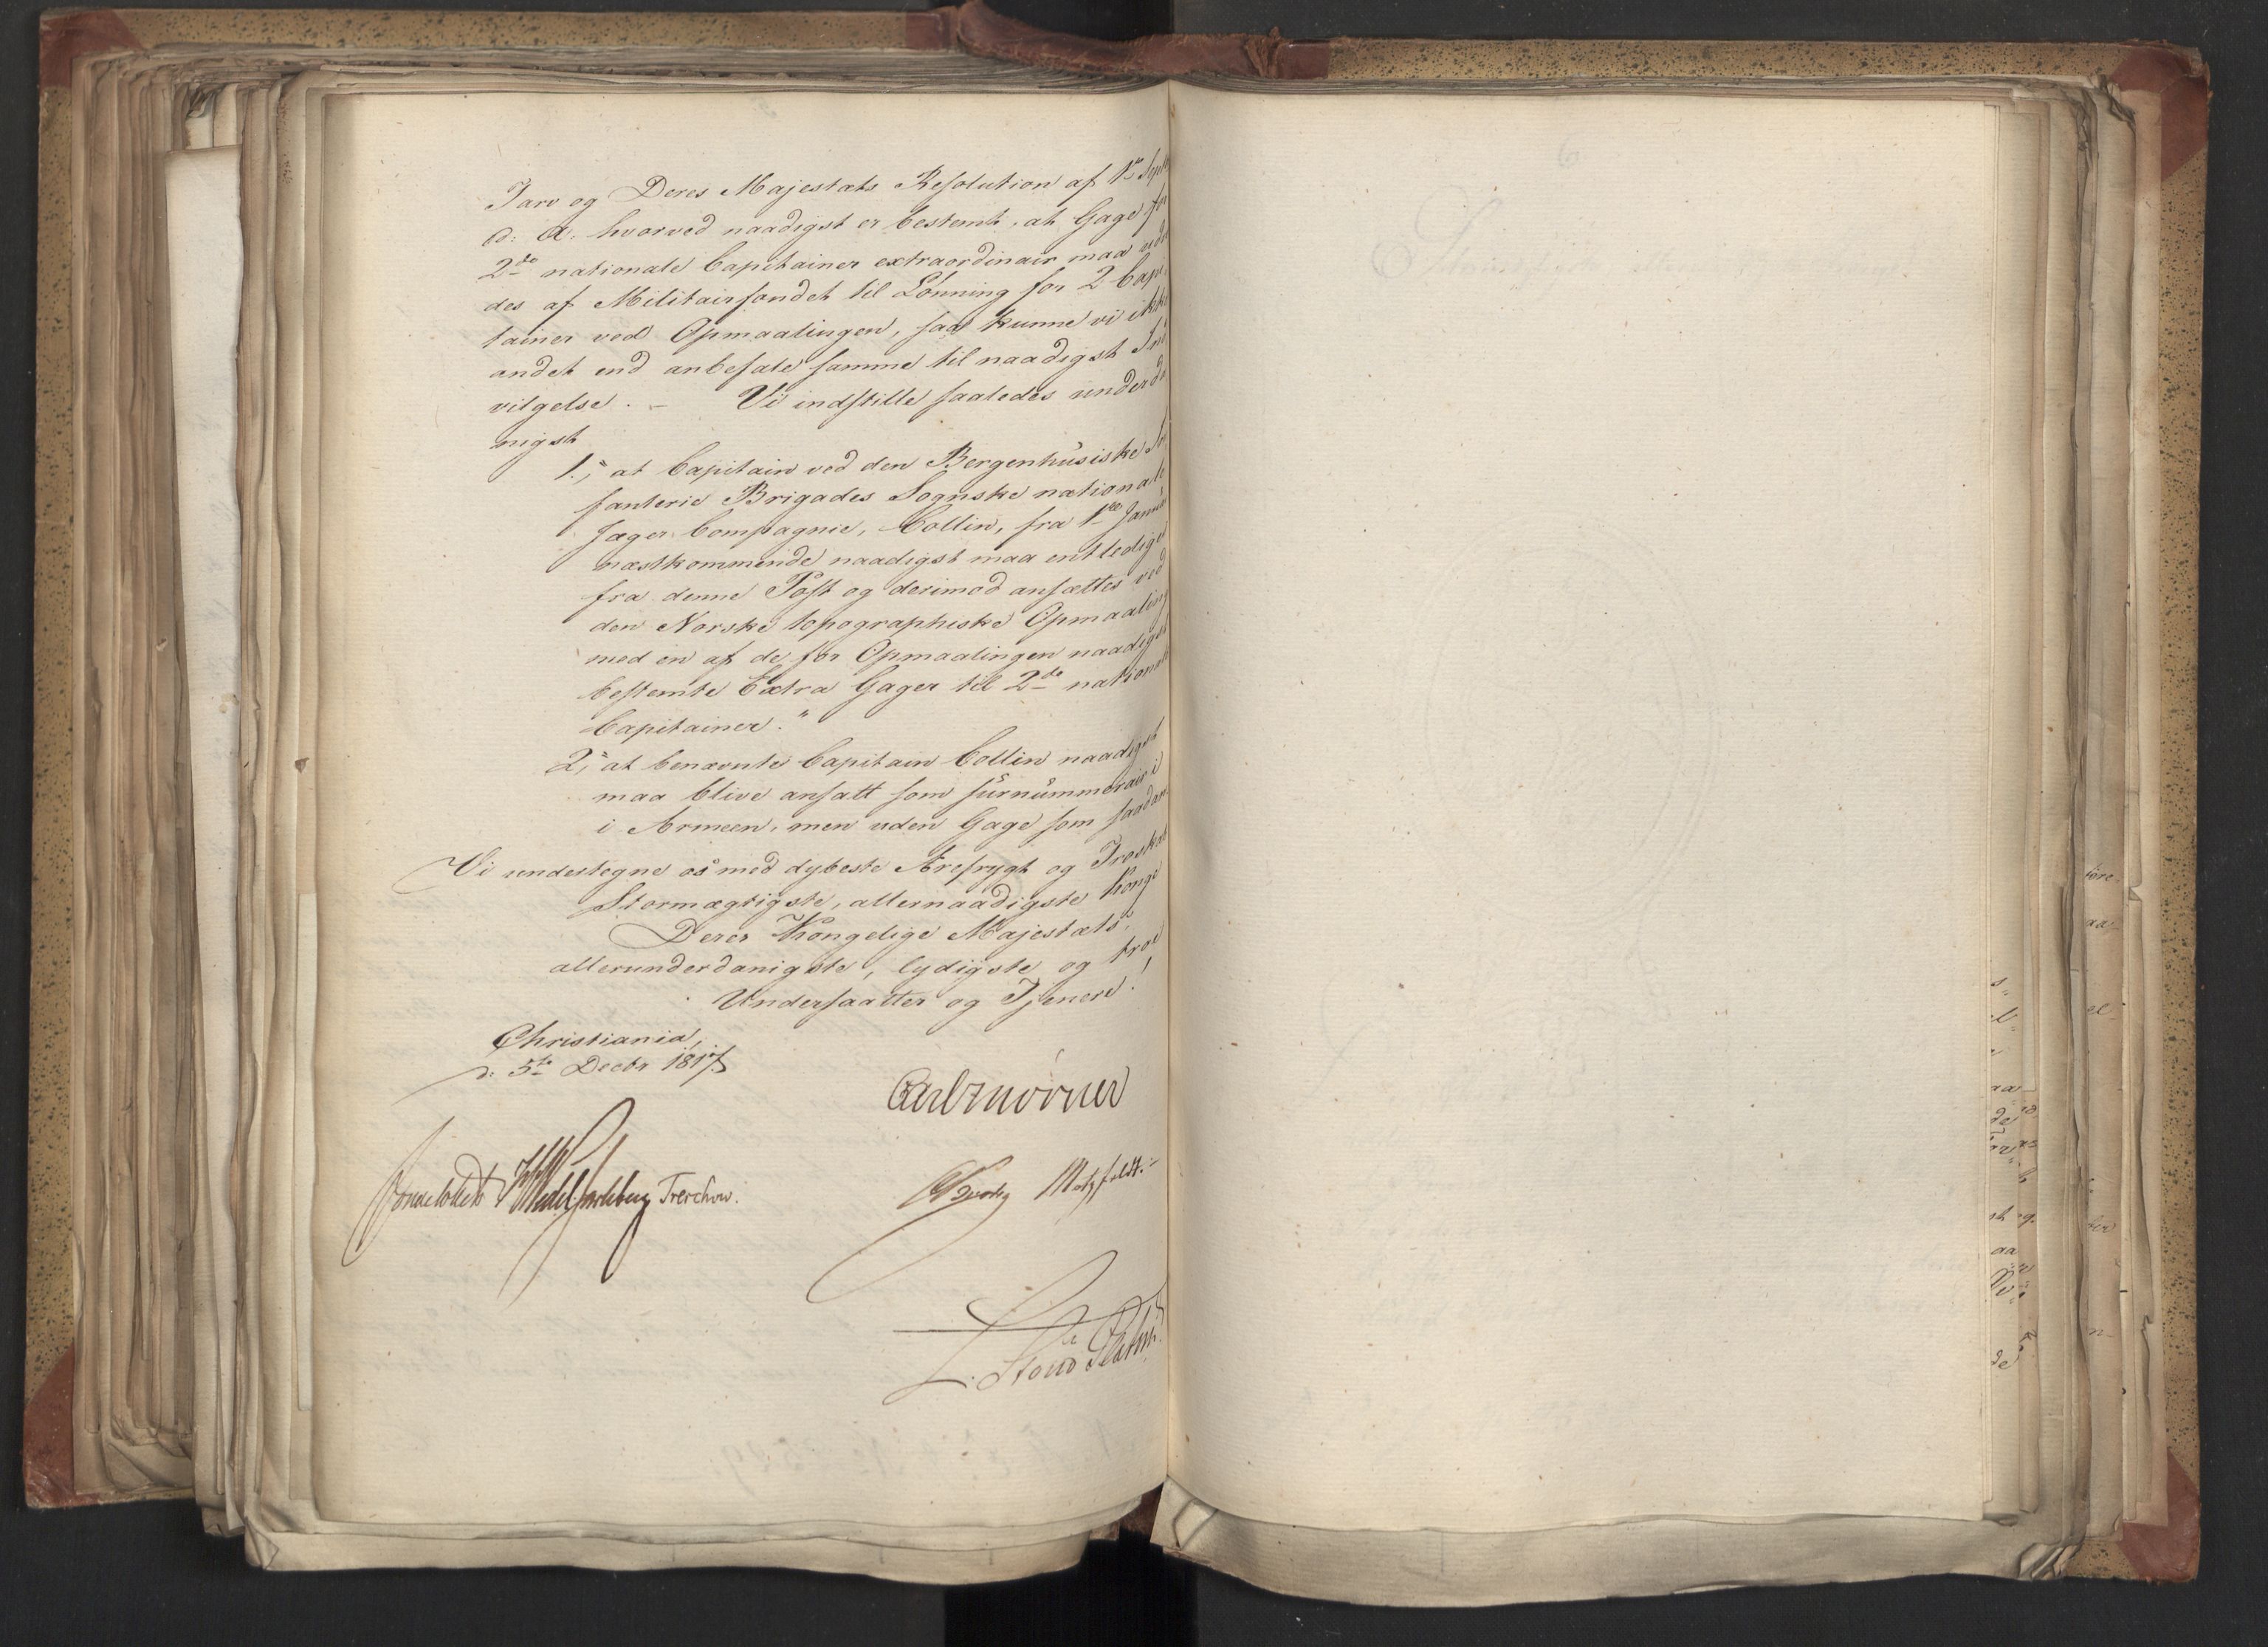 Tarv og Deres Majestæts Resolution af 1ste Septr
d: A: hvorved naadigst er bestemt, at Gage for
2de nationale Capitainer extraordinair maa ude
des af Militairfondet til Lønning for 2 Capi
tainer ved Opmaalingen, saa kunne vi ikke
andet end anbefale samme til naadigst Ind
vilgelse. – Vi indstille saaledes underda
nigst
1., at Capitain ved den Bergenhusiske In
fanterie Brigades Sognske nationale
Jæger Compagnie, Collin, fra 1ste Janu
næstkommende naadigst maa entlediges
fra denne Post og derimod ansættes ved
den Norske topographiske Opmaaling
med en af de for Opmaalingen naadigst
bestemte Extra Gager til 2de nationale
Capitainer."
2, at benævnte Capitain Collin naadigst
maa blive ansatt som surnummerair i
i Armeen, men uden Gage som saadan.
Vi undertegne os med dybeste Ærefrygt og Troskab
Stormægtigste, allernaadigste Konge
Deres Kongelige Majestæts
allerunderdanigste, lydigste og troe
Undersaatter og Tjenere!
Christiania,
d: 5te Decbr 1817
Carl Mörner
Sommerhielm HWedel Jarlsberg Treschow. Motzfeldt.